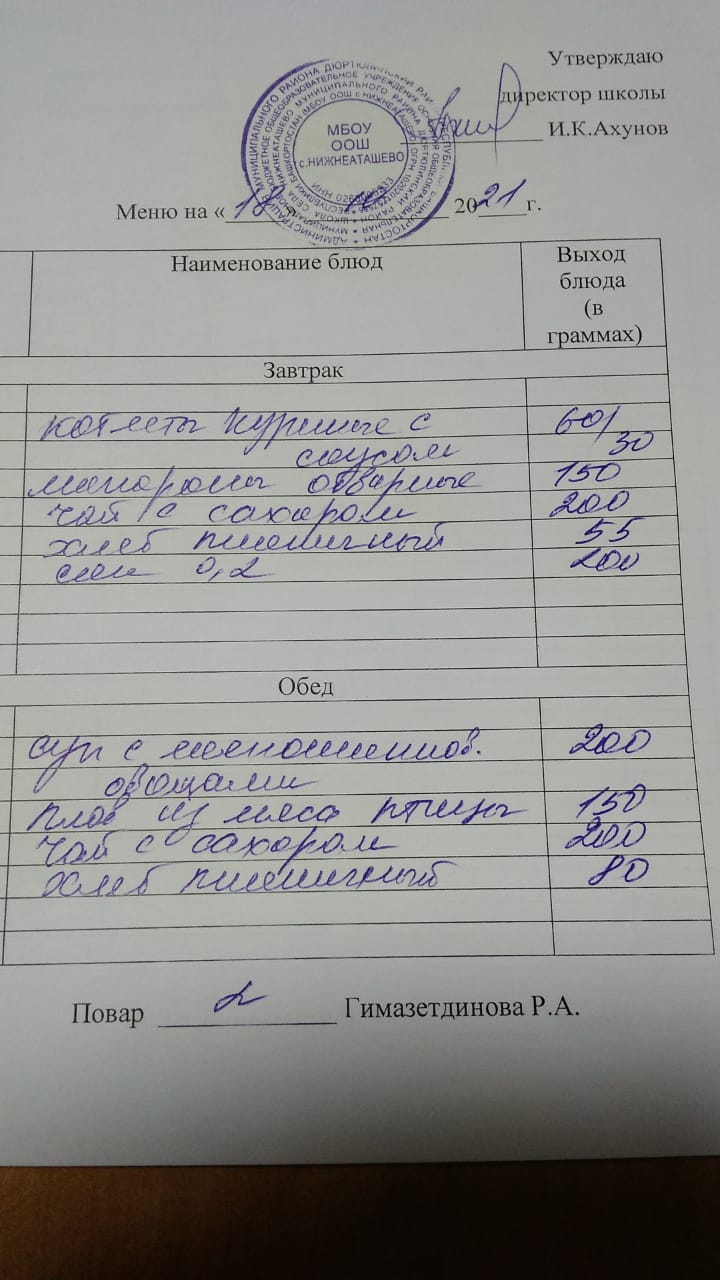 Утверждаю
директор школы
И.К.Ахунов
МБОУ
ООШ
с.НИЖНЕАТАШЕВО
Меню на « 18 » 2021 г.
Наименование блюд Выход блюда (в граммах)
Завтрак
котлеты куриные с 60/
соусом 30
макароны отварные 150
чай с сахаром 200
хлеб пшеничный 55
0,2 200
Обед
суп с 200
овощами
плов из мяса птицы 150
чай с сахаром 200
хлеб пшеничный 80
Повар Гимазетдинова Р.А.